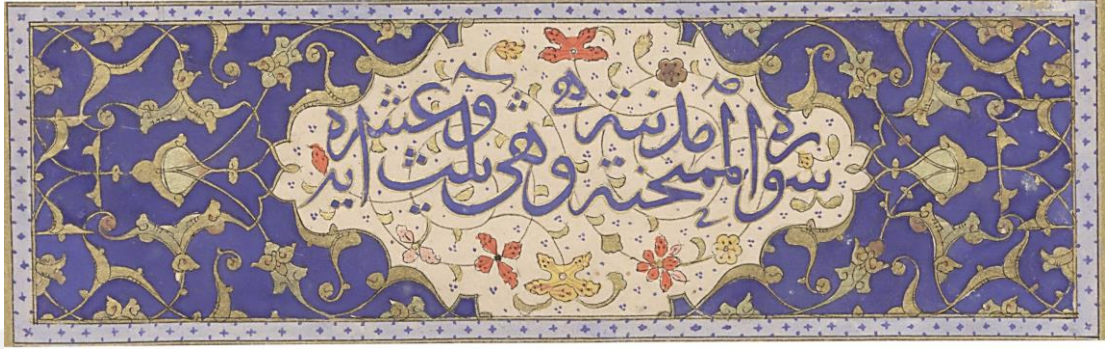 سورة الممتحنة مدنية وهي ثلث وعشره اية